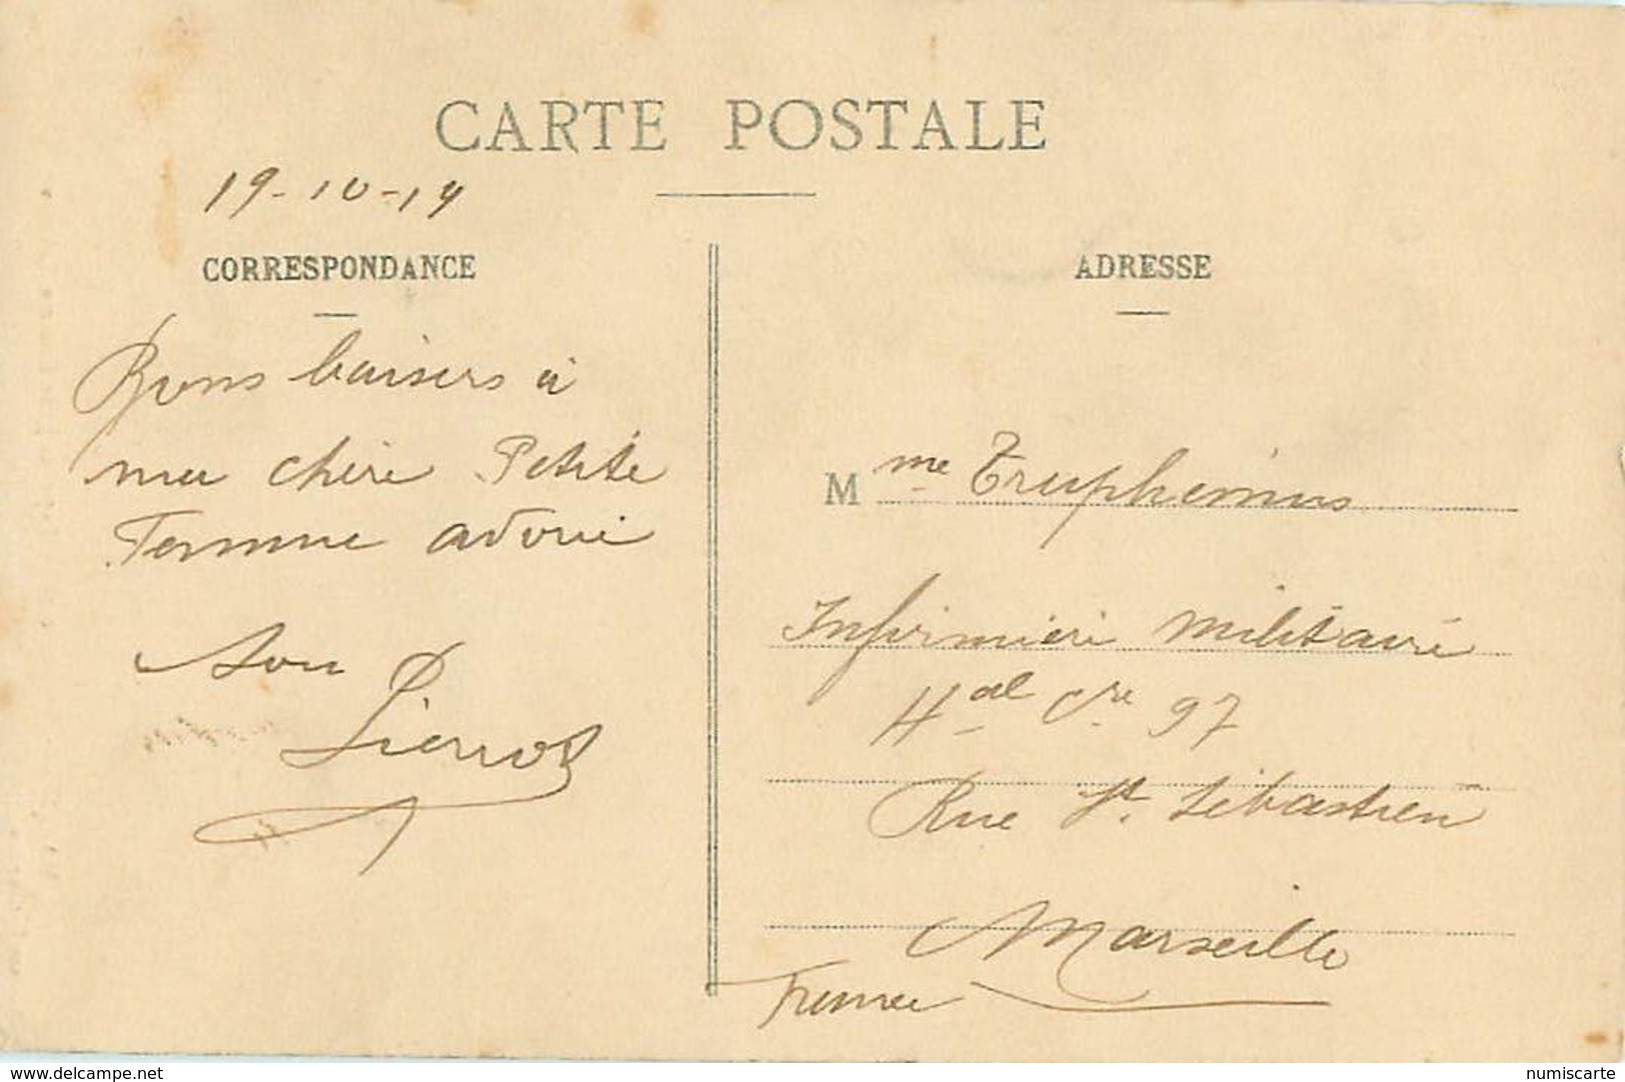 CARTE POSTALE
19-10-19
CORRESPONDANCE
Bons baisers à
ma chère Petite
Femme adorée
Son
Pierrot
ADRESSE
Mme Truphémus
Infirmière Militaire
Hal Cre 97
Rue St. Sébastien
Marseille
France
www.delcampe.net
numiscarte